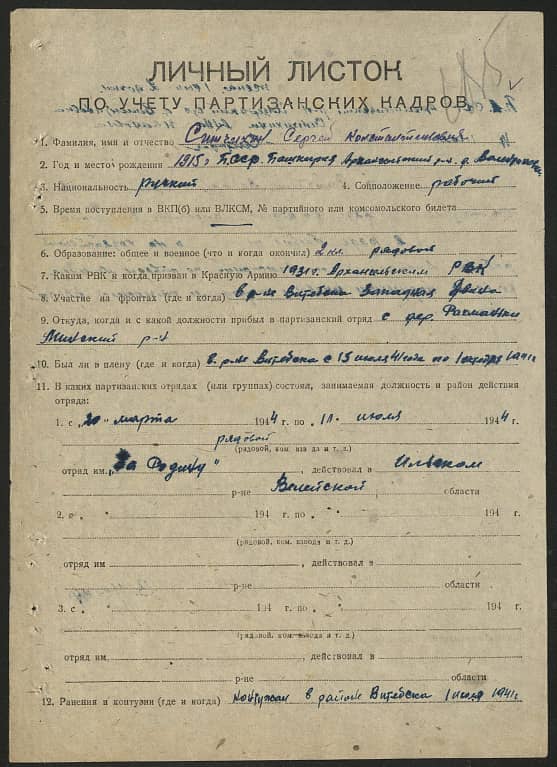 ЛИЧНЫЙ ЛИСТОК
ПО УЧЕТУ ПАРТИЗАНСКИХ КАДРОВ
1. Фамилия, имя и отчество Сергей Константинович
2. Год и место рождения 1915 г Башкирия Архангельский р-н. д.
3. Национальность русский 4. Соцположение рабочий
5. Время поступления в ВКП(б) или ВЛКСМ, № партийного или комсомольского билета
6. Образование: общее и военное (что и когда окончил) 2 кл. рядовой
7. Каким РВК и когда призван в Красную Армию Архангельским РВК
8. Участие на фронтах (где и когда) в р-не Витебска Западная Двина
9. Откуда, когда и с какой должности прибыл в партизанский отряд с дер.
Минский р-н
10. Был ли в плену (где и когда) в р-не Витебска с 15 июля 41 года по 1 октября 1941г
11. В каких партизанских отрядах (или группах) состоял, занимаемая должность и район действия
отряда:
1. с „20" марта 1944 г. по 11. июля 1944 г.
рядовой
(рядовой, ком. взвода и т. д.)
отряд им. „За Родину", действовал в Ильском
р-не Вилейской области
2. с 194 г. по 194 г.
(рядовой, ком. взвода и т. д.)
отряд им , действовал в
р-не области
3. с 194 г. по 194 г.
(рядовой, ком. взвода и т. д.)
отряд им. , действовал в
р-не области
12. Ранения и контузии (где и когда) контужен в районе Витебска 1 июля 1941г